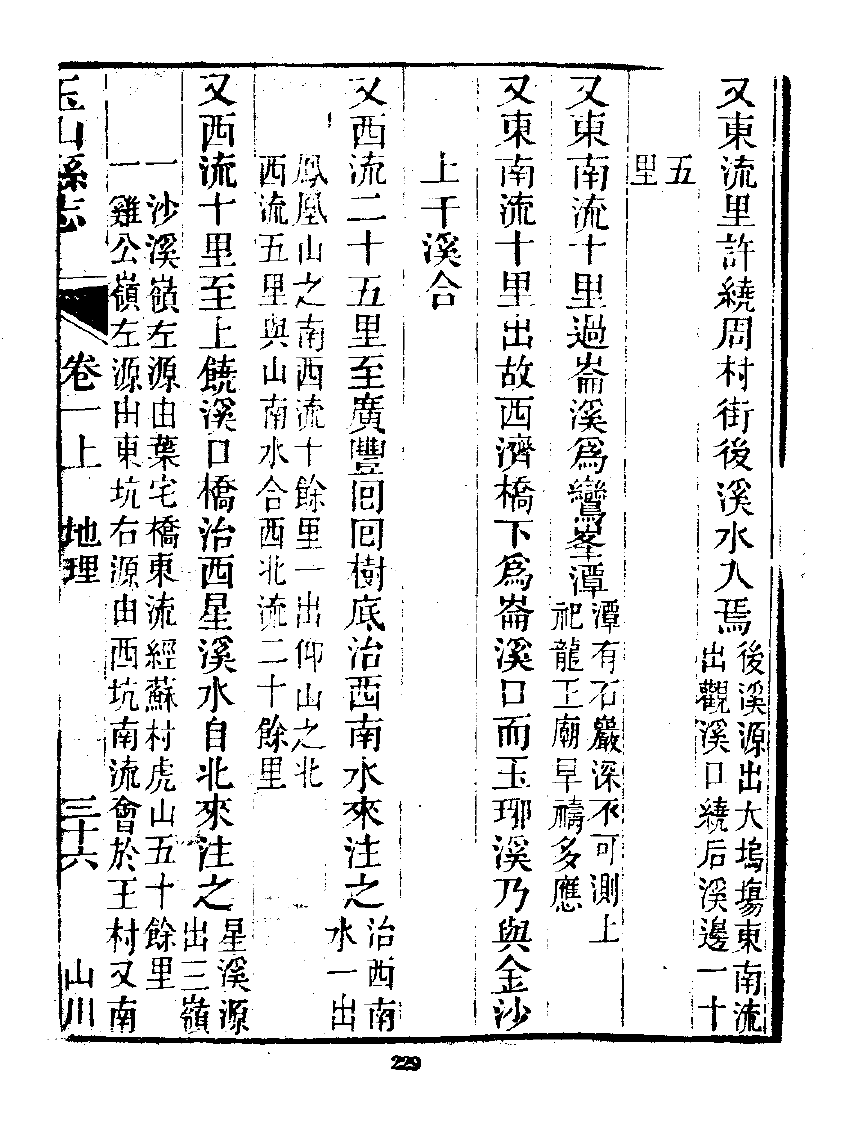 又東流里許繞周村街後溪水入焉後溪源出大塢塲東南流
出觀溪口繞后溪邊一十
五
里
又東南流十里過崙溪爲鸞峯潭潭有石巖深不可測上
祀龍王廟旱禱多應
又東南流十里出故西濟橋下爲崙溪口而玉琊溪乃與金沙
上干溪合
又西流二十五里至廣豐囘囘樹底治西南水來注之治西南
水一出
鳳凰山之南西流十餘里一出仰山之北
西流五里與山南水合西北流二十餘里
又西流十里至上饒溪口橋治西星溪水自北來注之星溪源
出三嶺
一沙溪嶺左源由葉宅橋東流經蘇村虎山五十餘里
一雞公嶺左源由東坑右源由西坑南流會於王村又南
玉山縣志 卷一上 地理 三十六 山川
229